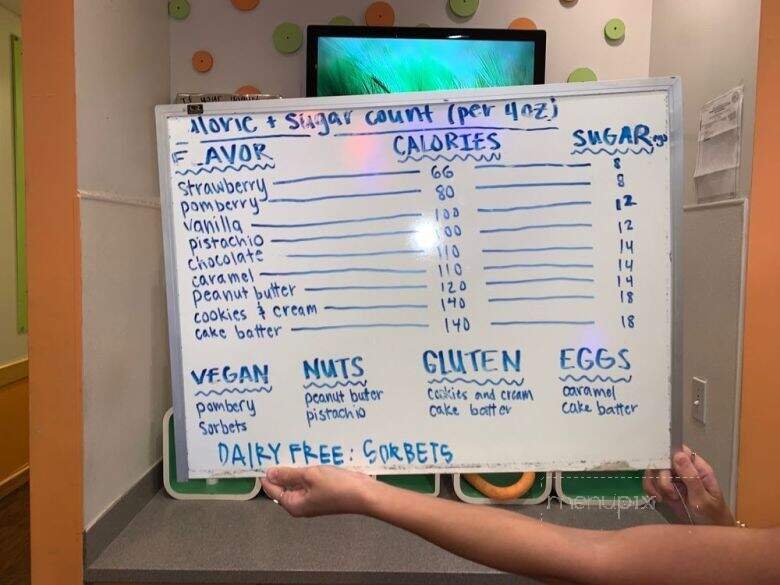 aloric + sugar count (per 4oz)
F LAVOR CALORIES SUGAR
strawberry 66 8
pomberry 80 8
vanilla 100 12
pistachio 100 12
chocolate 110 14
caramel 110 14
peanut butter 120 14
cookies & cream 140 18
cake batter 140 18
VEGAN NUTS GLUTEN EGGS
pombery peanut buter cookies and cream caramel
sorbets pistachio cake batter cake batter
DAIRY FREE: SORBETS
menupix